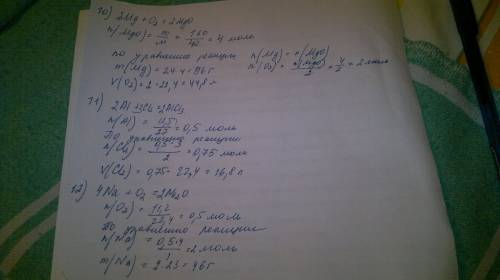 10) 2Mg + O₂ = 2MgO
n(MgO) = m/M = 160/40 = 4 моль
по уравнению реакции n(Mg) = n(MgO)
m(Mg) = 24·4 = 96г n(O₂) = n(MgO)/2 = 4/2 = 2 моль
V(O₂) = 2·22,4 = 44,8 л
11) 2Al + 3Cl₂ = 2AlCl₃
n(Al) = 13,5/27 = 0,5 моль
По уравнению реакции
n(Cl₂) = 0,5·3/2 = 0,75 моль
V(Cl₂) = 0,75·22,4 = 16,8 л
12) 4Na + O₂ = 2Na₂O
n(O₂) = 11,2/22,4 = 0,5 моль
По уравнению реакции
n(Na) = 0,5·4/1 = 2 моль
m(Na) = 2·23 = 46г